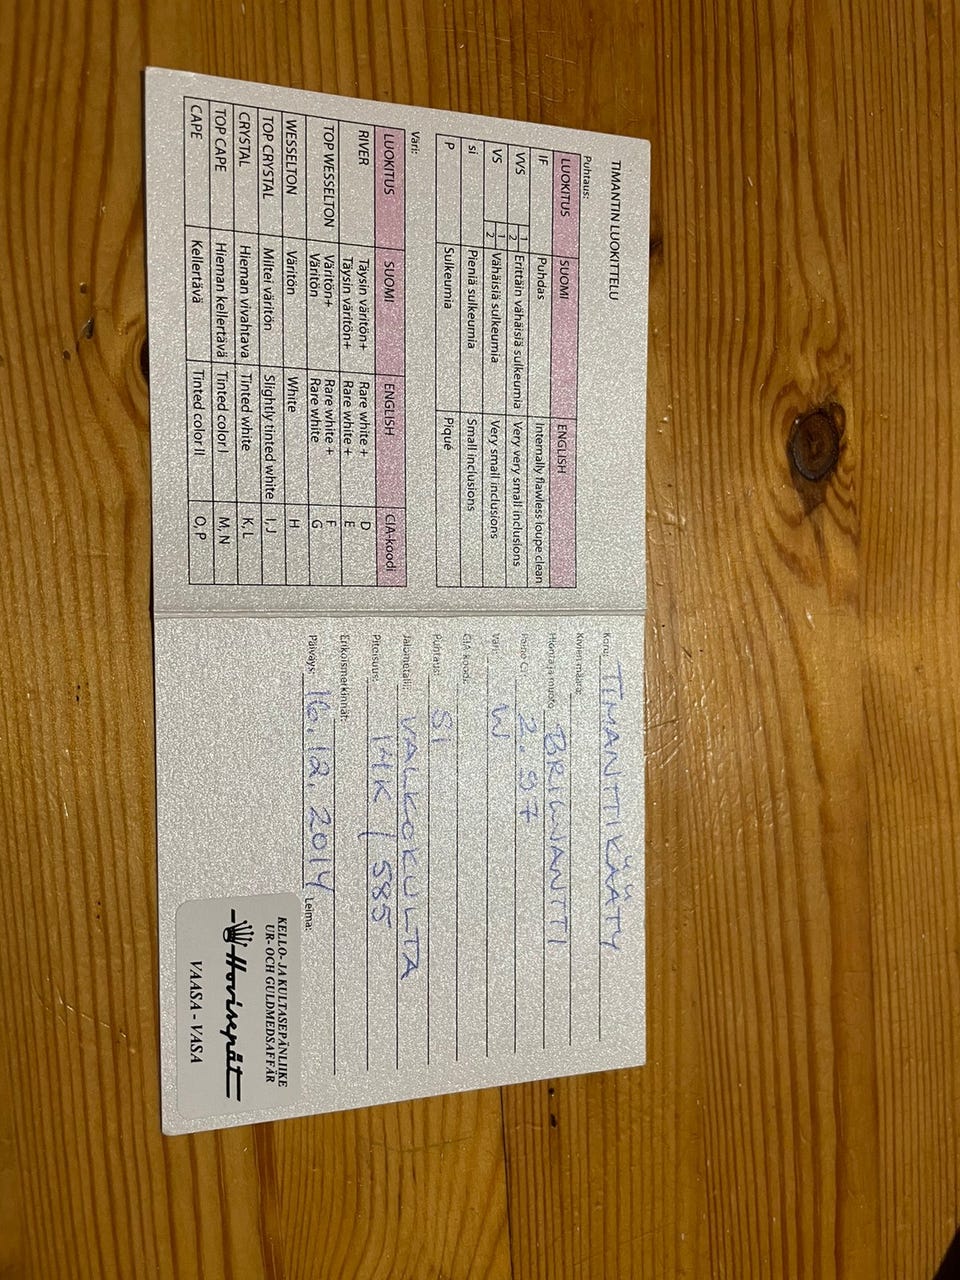 TIMANTIN LUOKITTELU
Puhtaus:
LUOKITUS SUOMI ENGLISH
IF Puhdas Internally flawless loupe clean
VVS 1 2 Erittäin vähäisiä sulkeumia Very very small inclusions
VS 1 2 Vähäisiä sulkeumia Very small inclusions
si Pieniä sulkeumia Small inclusions
P Sulkeumia Piqué
Väri:
LUOKITUS SUOMI ENGLISH GIA-koodi
RIVER Täysin väritön+ Rare white + D
Täysin väritön+ Rare white + E
TOP WESSELTON Väritön+ Rare white + F
Väritön Rare white G
WESSELTON Väritön White H
TOP CRYSTAL Miltei väritön Slightly tinted white I, J
CRYSTAL Hieman vivahtava Tinted white K, L
TOP CAPE Hieman kellertävä Tinted color I M, N
CAPE Kellertävä Tinted color II O, P
Koru: TIMANTTIKÄÄTY
Kivien määrä:
Hionta ja muoto: BRILJANTTI
Paino Ct.: 2.97
Väri: W
GIA-koodi:
Puhtaus: SI
Jalometalli: VALKOKULTA
Pitoisuus: 14K / 585
Erikoismerkinnät:
Päiväys: 16.12.2014 Leima:
KELLO- JA KULTASEPÄNLIIKE
UR- OCH GULDMEDSAFFÄR
Hovisepät
VAASA - VASA